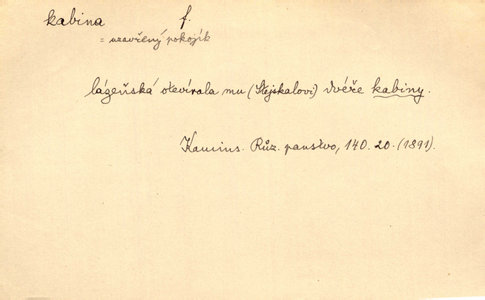 kabina f.
= uzavřený pokojík
lázeňská otevírala mu (Stejskalovi) dvéře kabiny.
Kamins. Růz. panstvo, 140. 20. (1891).